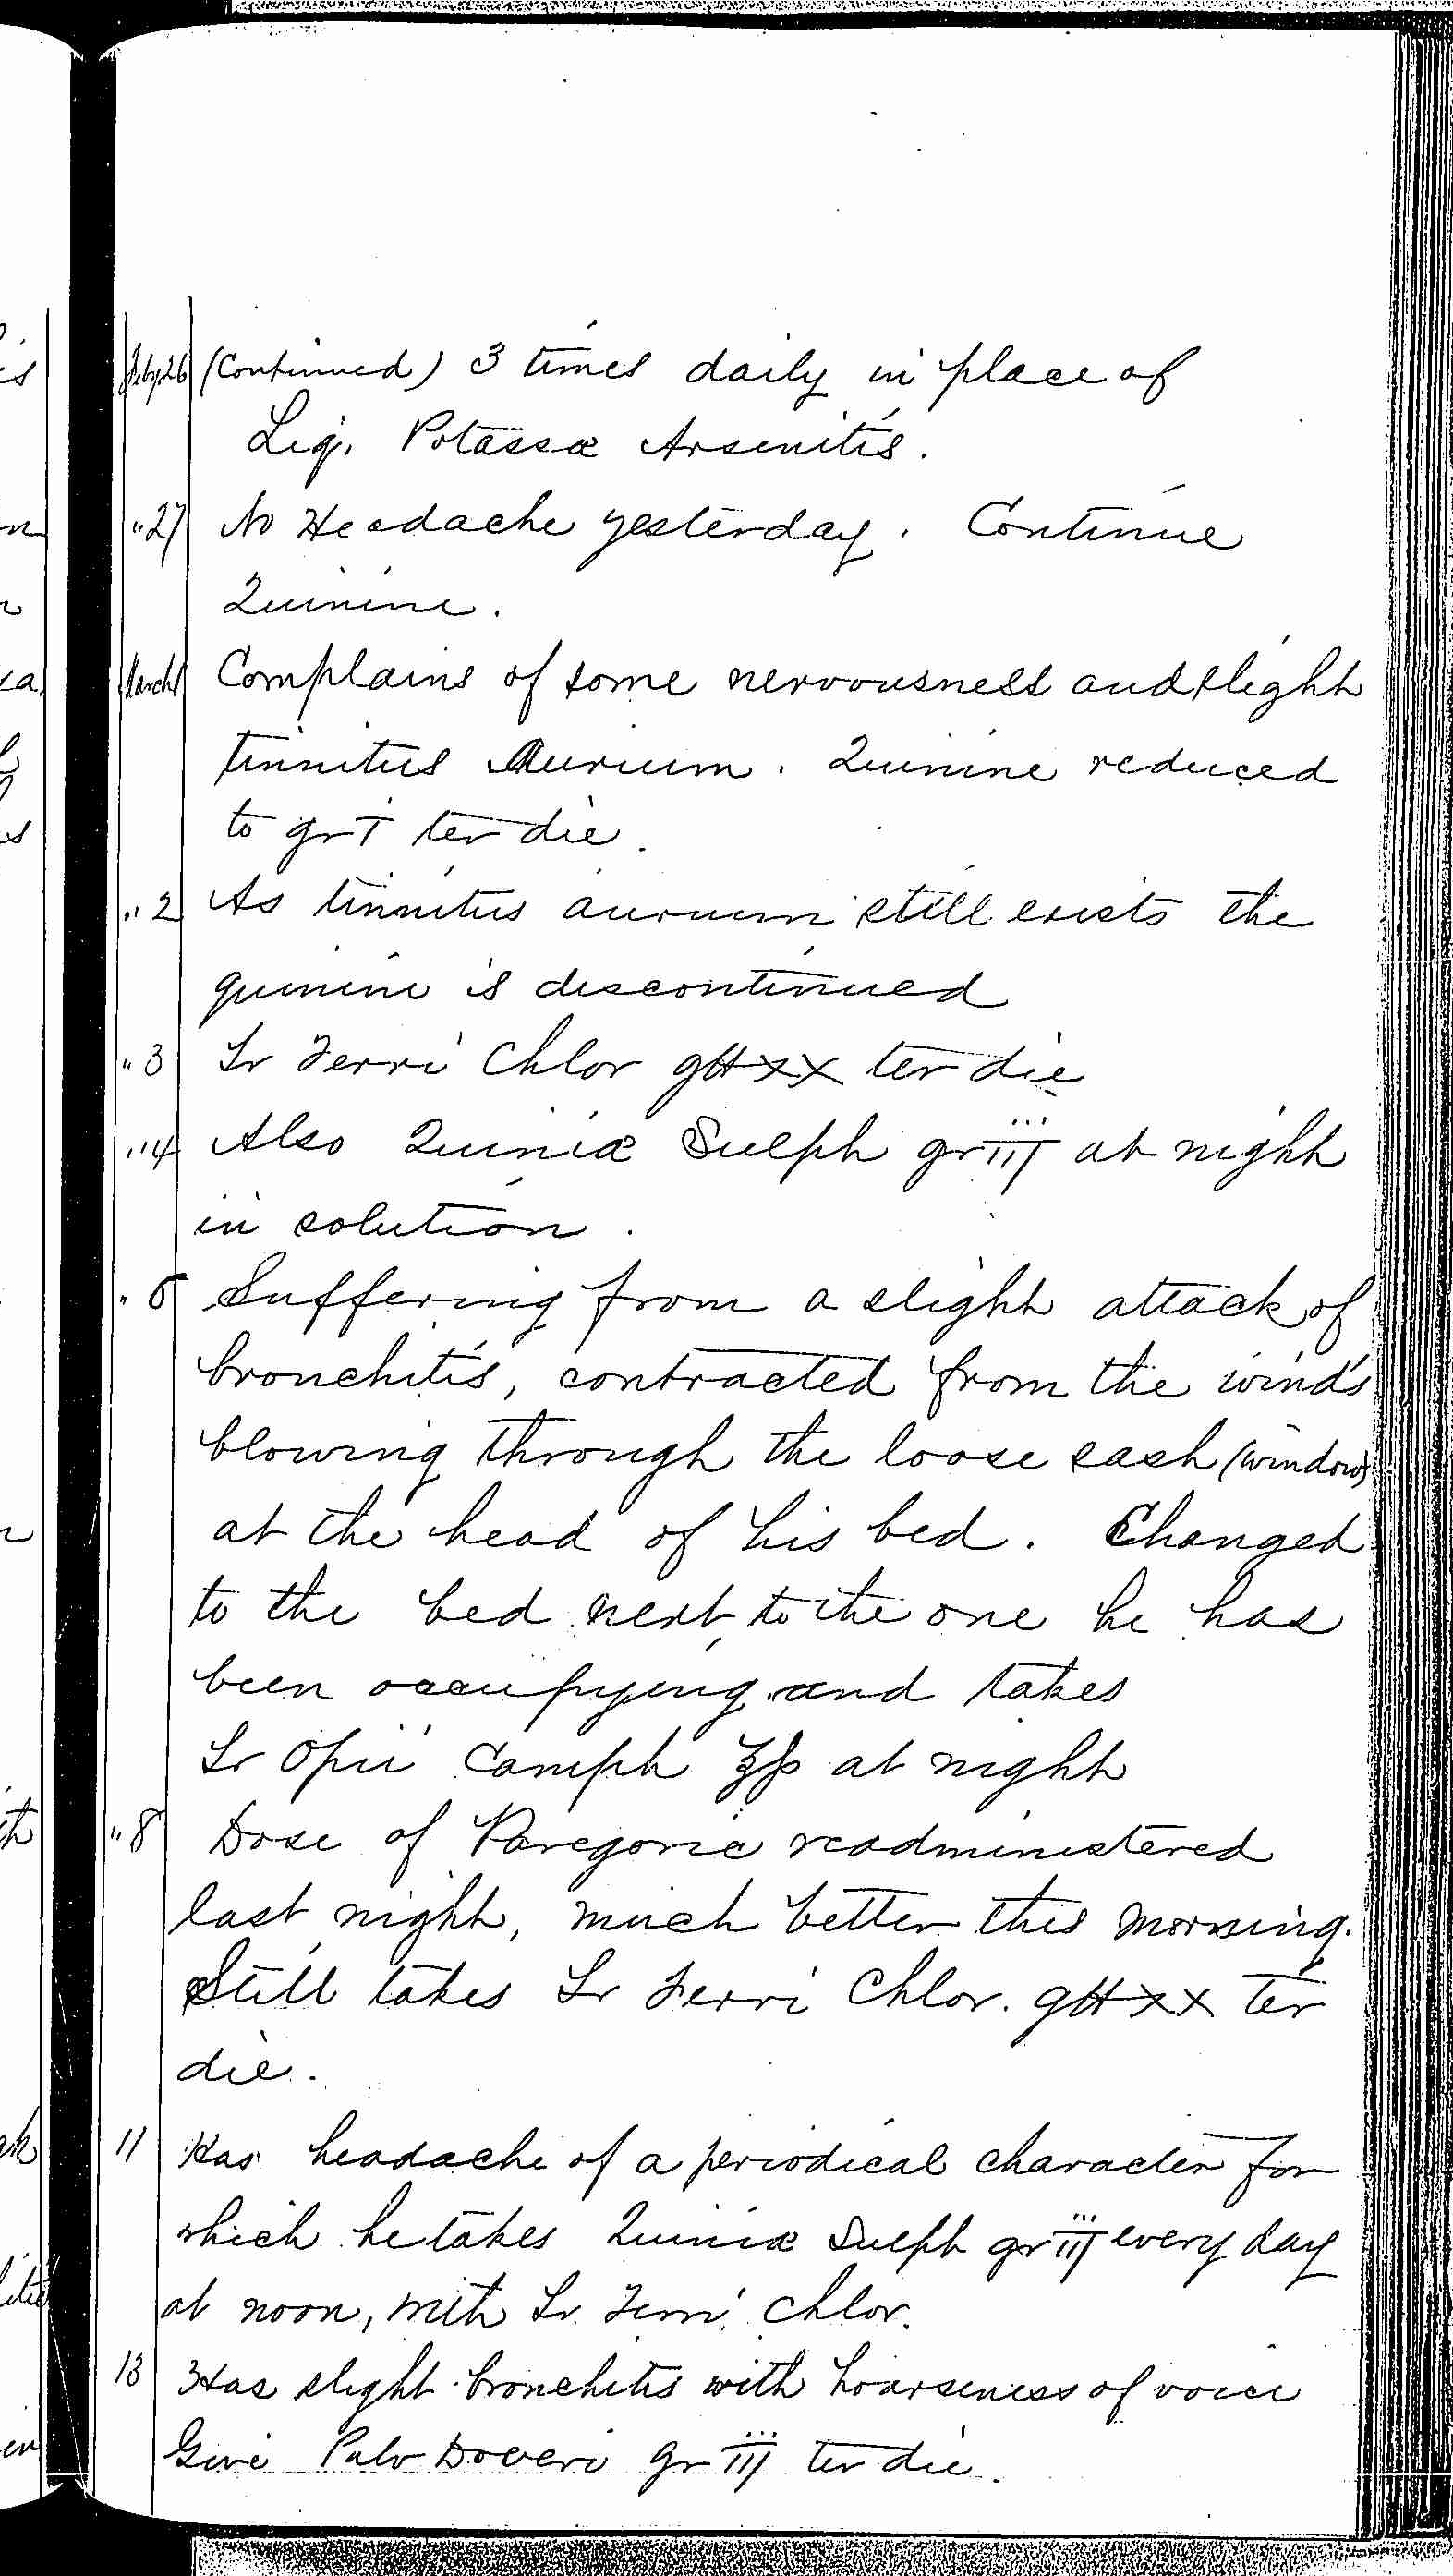 Feby 26 (Continued) 3 times daily in place of
Liq. Potassæ Arsenitis.
" 27 No Headache yesterday. Continue
Quinine.
March 1 Complains of some nervousness and slight
tinnitus Aurium. Quinine reduced
to gr i ter die.
" 2 As tinnitus aurium still exists the
quinine is discontinued
" 3 Tr Ferri Chlor gtt xx ter die
" 4 Also Quiniæ Sulph gr iij at night
in solution.
" 6 Suffering from a slight attack of
bronchitis, contracted from the winds
blowing through the loose sash (window)
at the head of his bed. Changed
to the bed next to the one he has
been occupying and takes
Tr Opii Camph ʒß at night
" 8 Dose of Paregoric readministered
last night, much better this morning.
Still takes Tr Ferri Chlor. gtt xx ter
die.
11 Has headache of a periodical character for
which he takes Quiniæ Sulph gr iij every day
at noon, with Tr. Ferri Chlor.
13 Has slight bronchitis with hoarseness of voice
Give Pulv Doveri gr iij ter die.